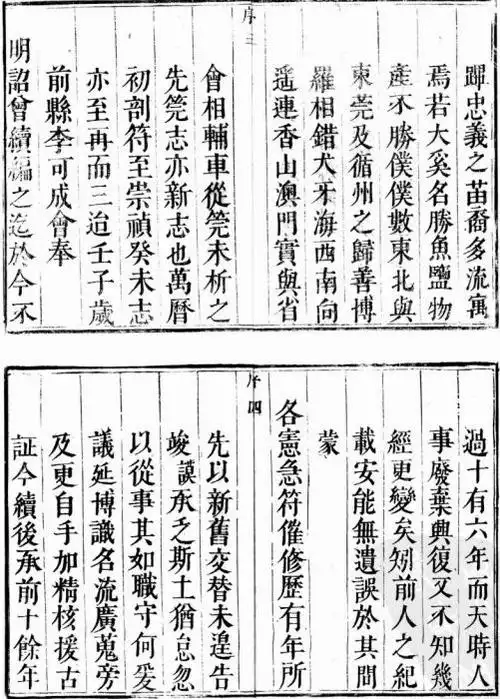 蹕忠義之苗裔多流寓
焉若大奚名勝魚鹽物
產不勝僕僕數東北與
東莞及循州之歸善博
羅相錯犬牙海西南向
遥連香山澳門實與省
序三
會相輔車從莞未析之
先莞志亦新志也萬曆
初剖符至崇禎癸未志
亦至再而三迨壬子歲
前縣李可成會奉
明詔曾續編之迄於今不
過十有六年而天時人
事廢棄興復又不知幾
經更變矣矧前人之紀
載安能無遺誤於其間
蒙
各憲急符催修歷有年所
序四
先以新舊交替未遑告
竣謨承乏斯土猶怠忽
以從事其如職守何爰
議延博識名流廣蒐旁
及更自手加精核援古
証今續後承前十餘年